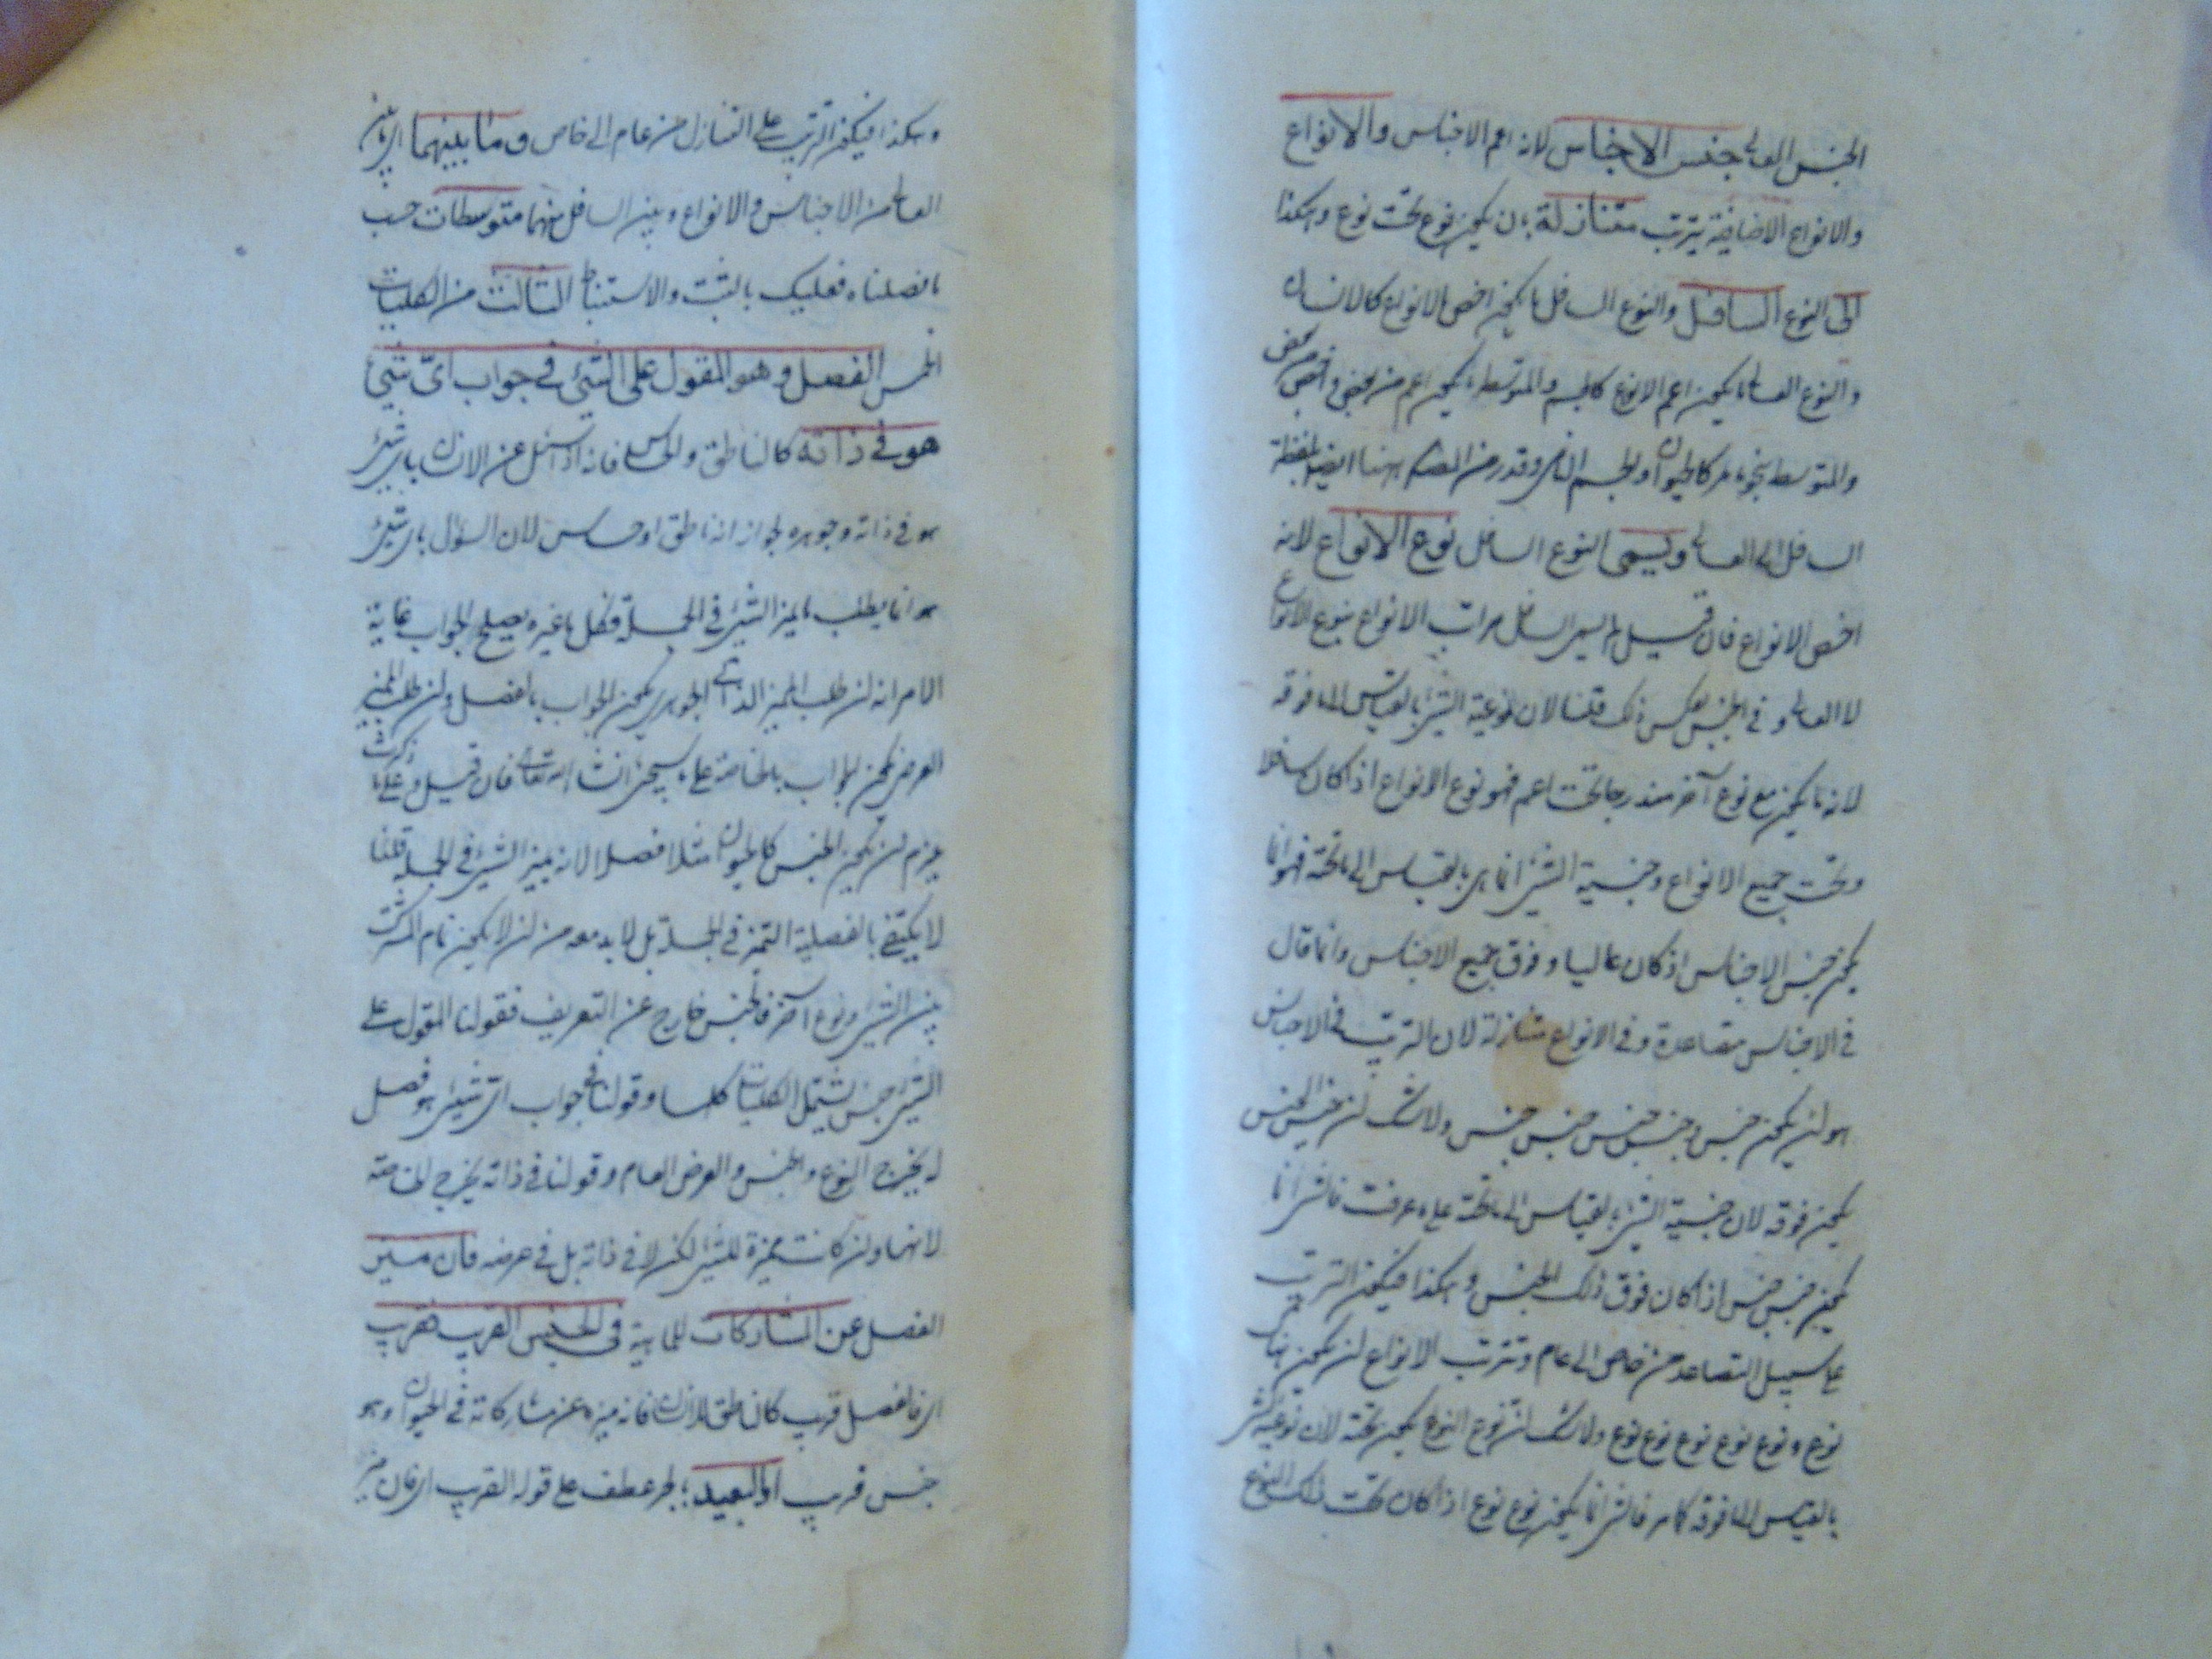 الجنس العالي جنس الاجناس لانه اعم الاجناس والانواع
والانواع الاضافية يترتب متنازلة بان يكون نوع تحت نوع وهكذا
الى النوع السافل والنوع السافل ما يكون اخص الانواع كالانسان
والنوع العالي ما يكون اعم الانواع كالجسم والمتوسط ما يكون اعم من بعض واخص من بعض
والمتوسط بنحو ما مر كالحيوان والجسم النامي وقد مر من المصنف ههنا ايضا لفظة
السافل الى العالي ويسمى النوع السافل نوع الانواع لانه
اخص الانواع فان قيل لم يسمى السافل مراتب الانواع بنوع الانواع
لا العالي و في الجنس بعكس ذلك قلنا لان نوعية الشئ بالقياس الى ما فوقه
لانه ما يكون مع نوع آخر مندرجا تحت اعم فهو نوع الانواع اذا كان سافلا
وتحت جميع الانواع وجنسية الشئ انما هي بالقياس الى ما تحته فهو انما
يكون جنس الاجناس اذ كان عاليا و فوق جميع الاجناس وانما قال
في الاجناس متصاعدة وفي الانواع متنازلة لان الترتيب في الاجناس
هو ان يكون جنس وجنس جنس وجنس جنس جنس ولا شك ان جنس الجنس
يكون فوقه لان جنسية الشئ بالقياس الى ما تحته على ما عرفت فالشئ انما
يكون جنس جنس اذا كان فوق ذلك الجنس وهكذا فيكون الترتيب
على سبيل التصاعد من خاص الى عام وترتب الانواع ان يكون هناك
نوع ونوع نوع ونوع نوع نوع ولا شك ان نوع النوع يكون تحته لان نوعية الشئ
بالقياس الى ما فوقه كما مر فالشئ انما يكون نوع نوع اذا كان تحت ذلك النوع
وهكذا فيكون الترتيب على التنازل من عام الى خاص وما بينهما اي ما بين
العالي من الاجناس والانواع وبين السافل منهما متوسطات حسب
ما فصلناه فعليك بالتثبت والاستنباط الثالث من الكليات
الخمس الفصل وهو المقول على الشئ في جواب اي شئ
هو في ذاته كالناطق والحساس فانه اذا سئل عن الانسان باي شئ
هو في ذاته وجوهره يجاب انه ناطق او حساس لان السؤال باي شئ
هو انما يطلب به ما يميز الشئ في الجملة فكل ما غيره يصلح للجواب غاية
الامر انه ان طلب المميز الذاتي الجوهري يكون الجواب بالفصل وان طلب المميز
العرضي يكون الجواب بالخاصة على ما سيجئ انشاء الله تعالى فان قيل وعلى ما ذكرت
يلزم ان يكون الجنس كالحيوان مثلا فصلا لانه يميز الشئ في الجملة قلنا
لا يكتفي بالفصلية التميز في الجملة بل لا بد معه من ان لا يكون تمام المشترك
بين الشئ ونوع آخر فالجنس خارج عن التعريف فقولنا المقول على
الشئ جنس يشتمل الكليات كلها وقولنا في جواب اي شئ هو فصل
له يخرج النوع والجنس والعرض العام وقولنا في ذاته يخرج الخاصة
لانها وان كانت مميزة للشئ لكن لا في ذاته بل في عرضه فان ميز
الفصل عن المشاركات للماهية في الجنس القريب فقريب
اي فالفصل قريب كالناطق للانسان فانه ميزه عن مشاركاته في الحيوان وهو
جنس قريب او البعيد بالجر عطف على قوله القريب اي فان ميز